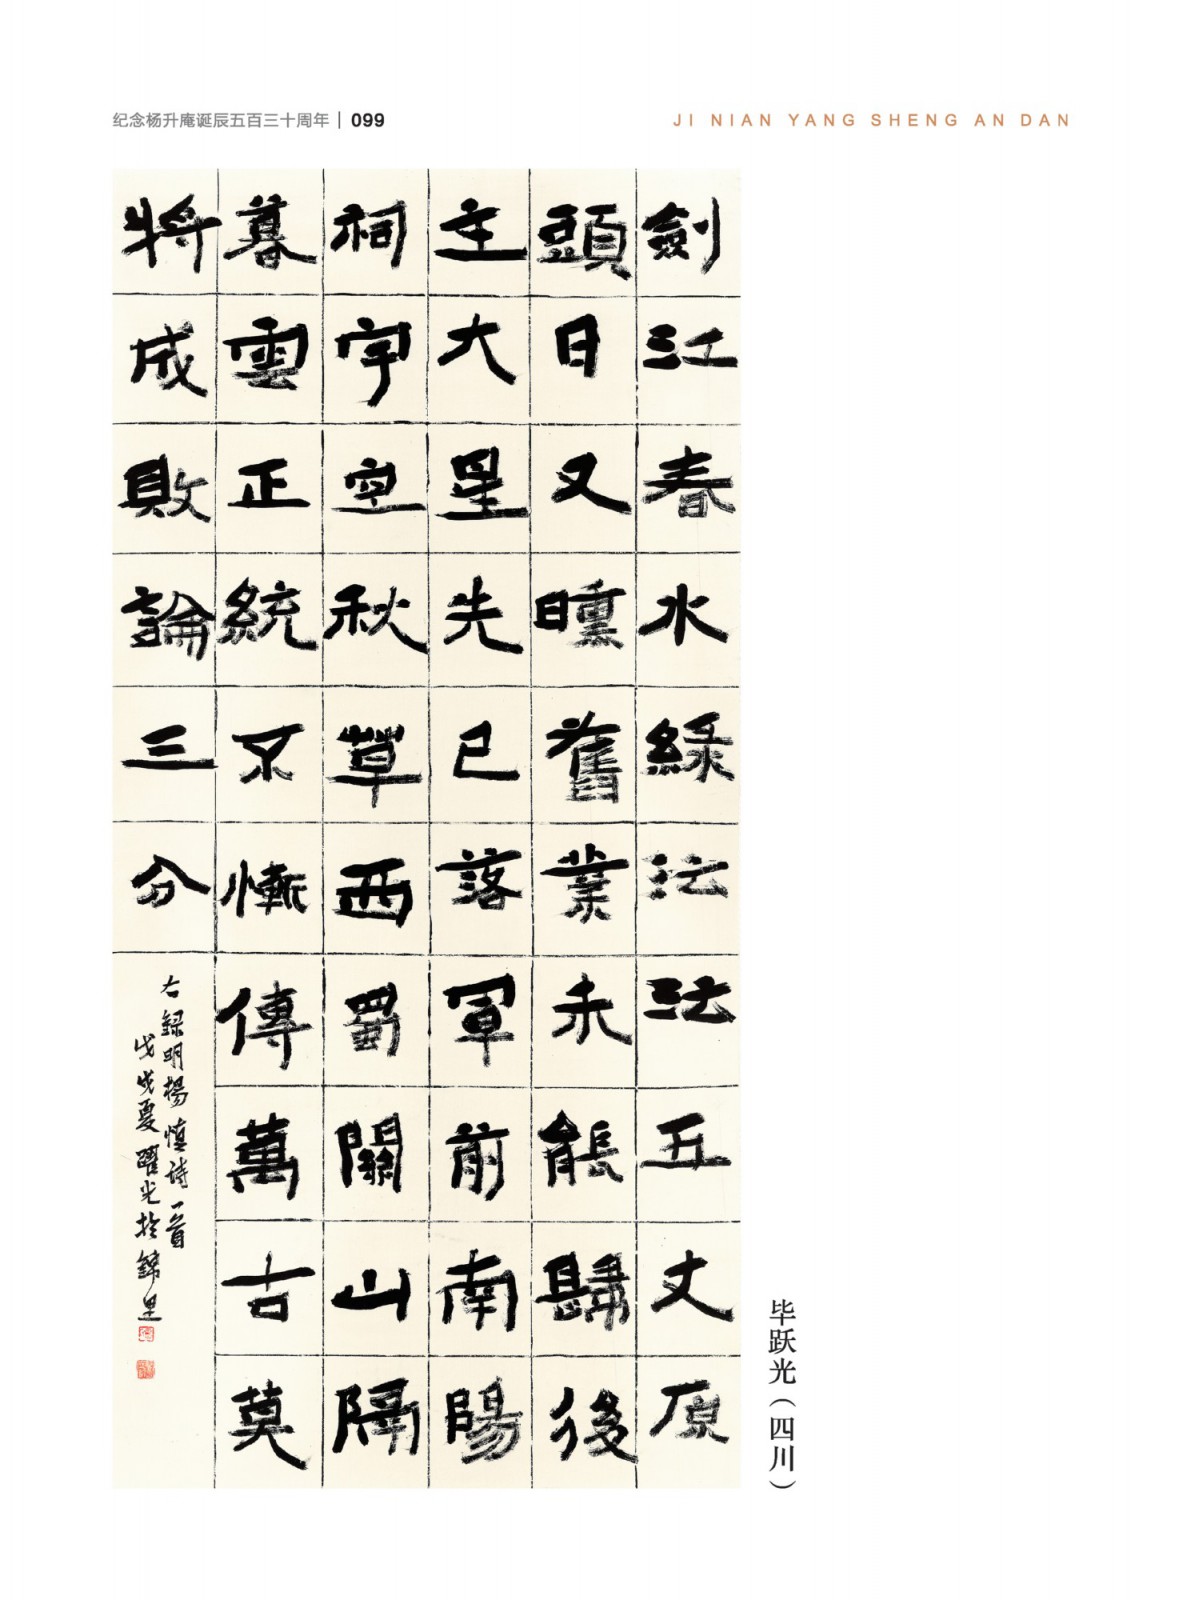 纪念杨升庵诞辰五百三十周年 | 099
JI NIAN YANG SHENG AN DAN
劍江春水綠沄沄五丈原
頭日又曛舊業未能歸後
主大星先已落軍前南陽
祠宇空秋草西蜀關山隔
暮雲正統不慚傳萬古莫
將成敗論三分
右録明楊慎诗一首
戊戌夏躍光於錦里
毕跃光（四川）